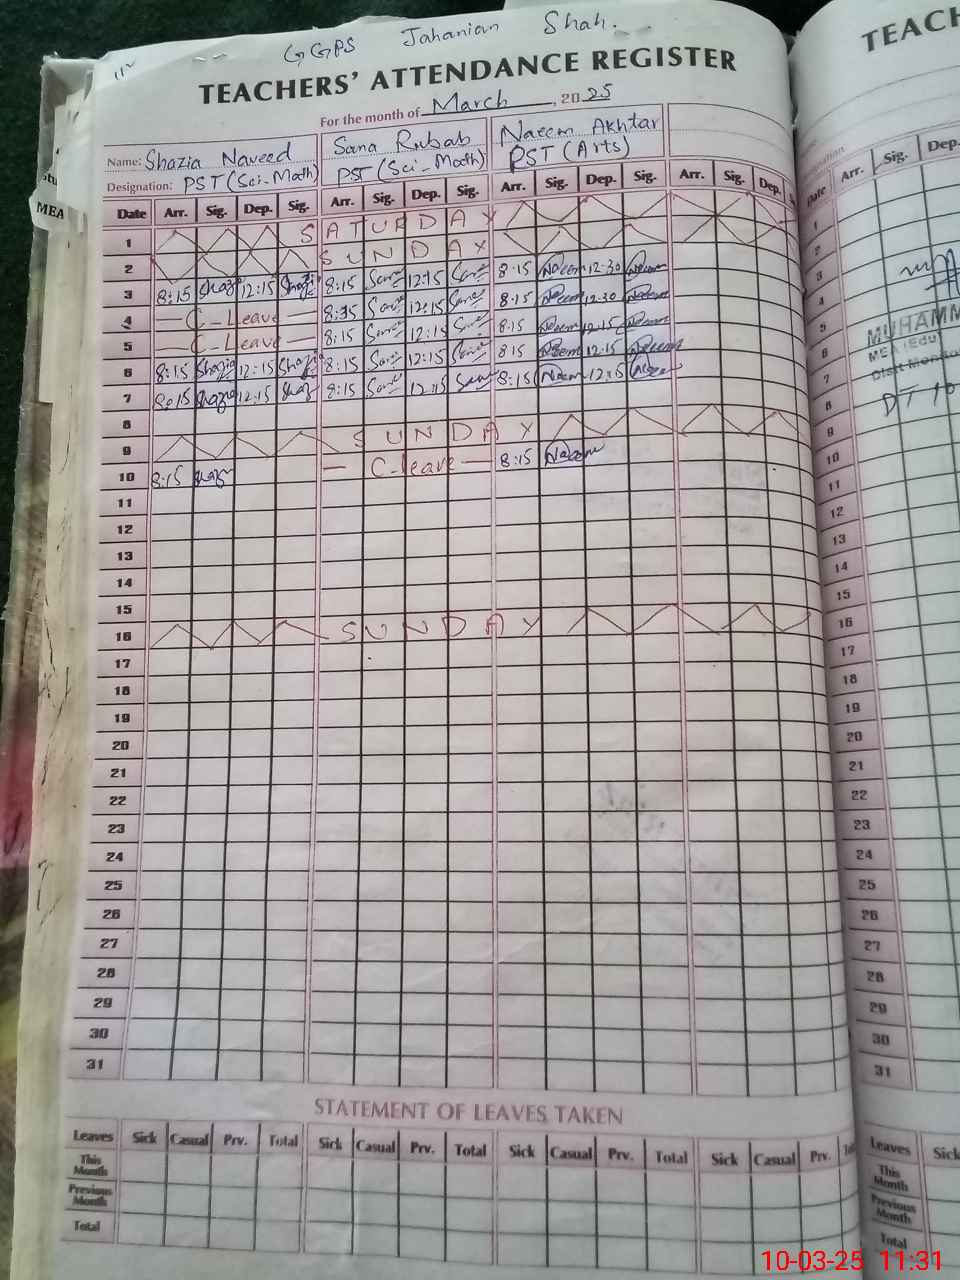 GGPS Jahanian Shah.
TEACHERS' ATTENDANCE REGISTER
For the month of March, 2025
Name: Shazia Naveed Sana Rubab Naeem Akhtar
Designation: PST (Sci-Math) PST (Sci-Math) PST (Arts)
Date Arr. Sig. Dep. Sig. Arr. Sig. Dep. Sig. Arr. Sig. Dep. Sig. Arr. Sig. Dep.
1 SATURDAY
2 SUNDAY
3 8:15 Shazia 12:15 Shazia 8:15 Sana 12:15 Sana 8:15 Naeem 12:30 Naeem
4 C-Leave 8:35 Sana 12:15 Sana 8:15 Naeem 12:30 Naeem
5 C-Leave 8:15 Sana 12:15 Sana 8:15 Naeem 12:15 Naeem
6 8:15 Shazia 12:15 Shazia 8:15 Sana 12:15 Sana 8:15 Naeem 12:15 Naeem
7 8:15 Shazia 12:15 Shaz 8:15 Sana 12:15 Sana 8:15 Naeem 12:15 Naeem
8
9 SUNDAY
10 8:15 Shaz C-leave 8:15 Naeem
11
12
13
14
15
16 SUNDAY
17
18
19
20
21
22
23
24
25
26
27
28
29
30
31
STATEMENT OF LEAVES TAKEN
Leaves Sick Casual Prv. Total Sick Casual Prv. Total Sick Casual Prv. Total Sick Casual Prv.
This Month
Previous Month
Total
TEACH
Date Arr. Sig. Dep.
1
2
3
4
5
6
7
8
9
10
11
12
13
14
15
16
17
18
19
20
21
22
23
24
25
26
27
28
29
30
31
MUHAMM
MEA (Edu)
Leaves Sick
This Month
Previous Month
Total
MEA
10-03-25 11:31